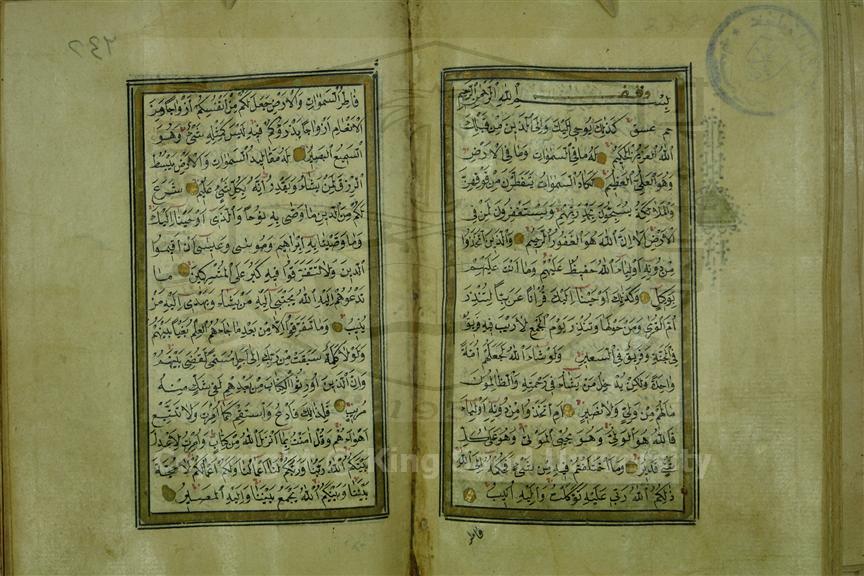 وقف
بسم الله الرحمن الرحيم
حم عسق كذلك يوحي اليك والى الذين من قبلك
الله العزيز الحكيم له ما في السموات وما في الارض
وهو العلي العظيم تكاد السموات يتفطرن من فوقهن
والملائكة يسبحون بحمد ربهم ويستغفرون لمن في
الارض الا ان الله هو الغفور الرحيم والذين اتخذوا
من دونه اولياء الله حفيظ عليهم وما انت عليهم
بوكيل وكذلك اوحينا اليك قرانا عربيا لتنذر
ام القرى ومن حولها وتنذر يوم الجمع لا ريب فيه فريق
في الجنة وفريق في السعير ولو شاء الله لجعلهم امة
واحدة ولكن يدخل من يشاء في رحمته والظالمون
مالهم من ولي ولا نصير ام اتخذوا من دونه اولياء
فالله هو الولي وهو يحيي الموتى وهو على كل
شيء قدير وما اختلفتم فيه من شيء فحكمه الى الله
ذلكم الله ربي عليه توكلت واليه انيب
فاطر
٦٤٢
فاطر السموات والارض جعل لكم من انفسكم ازواجا ومن
الانعام ازواجا يذرؤكم فيه ليس كمثله شيء وهو
السميع البصير له مقاليد السموات والارض يبسط
الرزق لمن يشاء ويقدر انه بكل شيء عليم شرع
لكم من الدين ما وصى به نوحا والذي اوحينا اليك
وما وصينا به ابراهيم وموسى وعيسى ان اقيموا
الدين ولا تتفرقوا فيه كبر على المشركين ما
تدعوهم اليه الله يجتبي اليه من يشاء ويهدي اليه من
ينيب وما تفرقوا الا من بعد ما جاءهم العلم بغيا بينهم
ولولا كلمة سبقت من ربك الى اجل مسمى لقضي بينهم
وان الذين اورثوا الكتاب من بعدهم لفي شك منه
مريب فلذلك فادع واستقم كما امرت ولا تتبع
اهواءهم وقل امنت بما انزل الله من كتاب وامرت لاعدل
بينكم الله ربنا وربكم لنا اعمالنا ولكم اعمالكم لا حجة
بيننا وبينكم الله يجمع بيننا واليه المصير